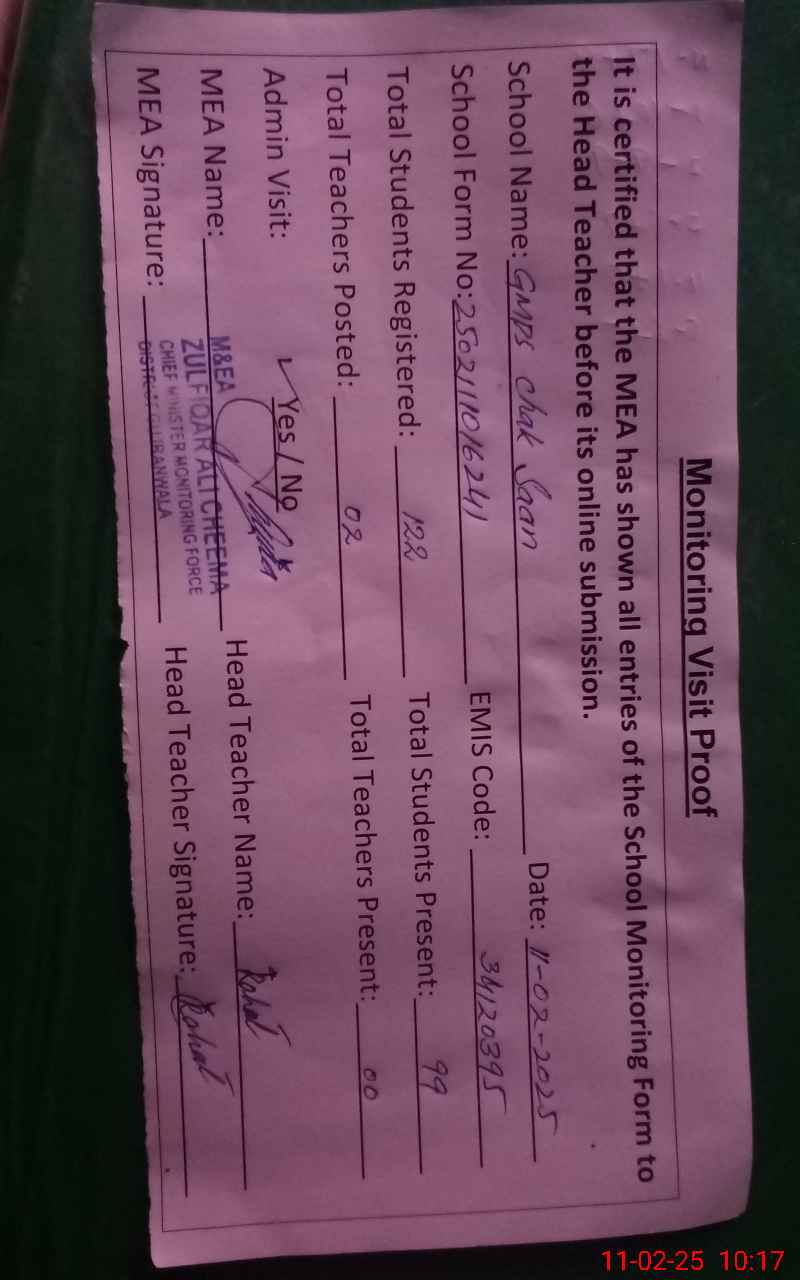 Monitoring Visit Proof
It is certified that the MEA has shown all entries of the School Monitoring Form to
the Head Teacher before its online submission.
School Name: GMPS Chak Saan Date: 11-02-2025
School Form No: 2502111016241 EMIS Code: 34120395
Total Students Registered: 122 Total Students Present: 99
Total Teachers Posted: 02 Total Teachers Present: 00
Admin Visit: ✓ Yes / No
MEA Name: Head Teacher Name: Rahat
MEA Signature: Head Teacher Signature: Rahat
M&EA
ZULFIQAR ALI CHEEMA
CHIEF MINISTER MONITORING FORCE
DISTRICT GUJRANWALA
11-02-25 10:17